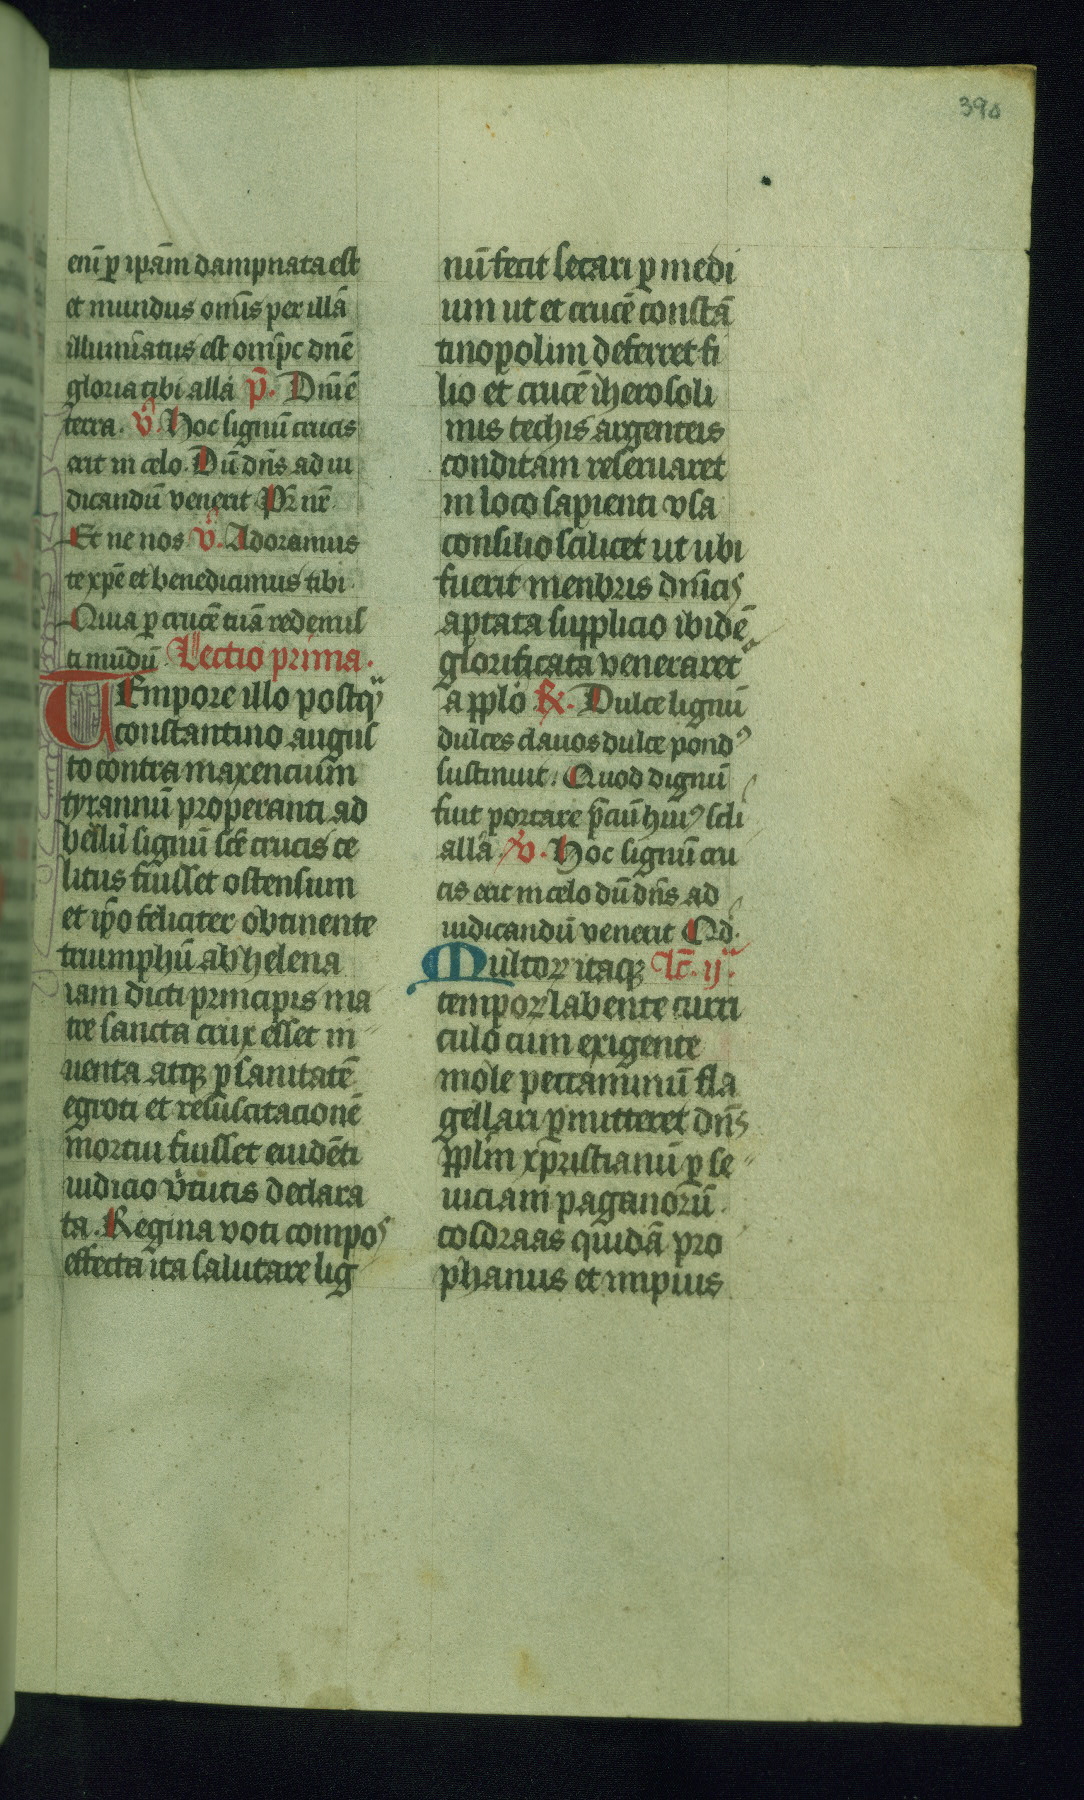 390
enī ꝑ ipām dampnata est
et mundus om̄s per illā
illumīatus est omp̄c dnē
gloria tibi allā p̄. Dnī ē
terra. v̄. Hoc lignū crucis
erit in celo. Dū dn̄s ad iu
dicandū venerit Pr̄ nr̄
Et ne nos v̄. Adoramus
te xp̄e et benedicimus tibi
Quia ꝑ crucē tuā redemis
ti mūdū. Lectio prima.
TEmpore illo postq̄
constantino augus
to contra maxencium
tyrannū properanti ad
bellū signū sc̄e crucis ce
litus fuisset ostensum
et ip̄o feliciter obtinente
triumphū ab helena
iam dicti principis ma
tre sancta crux esset in
uenta atqꝫ ꝑ sanitatē
egroti et resuscitacionē
mortui fuisset euidēti
iudicio v̄tutis declara
ta. Regina voti compos
effecta ita salutare lig
nū fecit secari ꝑ medi
um ut et crucē constā
tinopolim deferret fi
lio et crucē iherosoli
mis techis argenteis
conditam reseruaret
in loco sapienti vsa
consilio scilicet ut ubi
fuerit menbris dnīcis
aptata supplicio ibidē
glorificata veneraret᷑
a pplo ℟. Dulce lignū
dulces clauos dulce pondꝰ
sustinuit. Quod dignū
fuit portare p̄ciū huiꝰ scli
allā. v̄. Hoc signū cru
cis erit in celo dū dn̄s ad
iudicandū venerit Qd̄.
Multoꝝ itaqꝫ Lc̄. ij.
tempoꝝ labente curri
culo cum exigente
mole peccaminū fla
gellari ꝑmitteret dn̄s
pplm̄ xp̄ristianū ꝑ se
uiciam paganorū
cosdraas quidā pro
phanus et impius